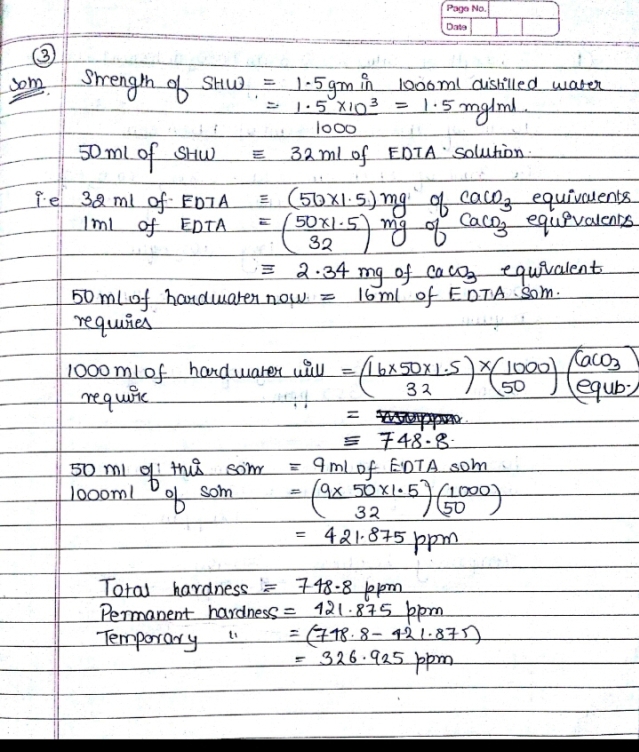 Page No.
Date
③
Som Strength of SHW = 1.5gm in 1000ml distilled water
= 1.5 × 10³ = 1.5 mg/ml.
1000
50 ml of SHW ≡ 32 ml of EDTA solution.
i.e 32 ml of EDTA ≡ (50×1.5) mg of CaCO₃ equivalents
1ml of EDTA = (50×1.5 / 32) mg of CaCO₃ equivalents
≡ 2.34 mg of CaCO₃ equivalent
50 ml of hardwater now = 16 ml of EDTA som.
requires
1000 ml of hardwater will = (16×50×1.5 / 32) × (1000 / 50) (CaCO₃ equb.)
require
=
≡ 748.8.
50 ml of this som = 9 ml of EDTA som
1000ml of som = (9× 50×1.5 / 32) (1000 / 50)
= 421.875 ppm
Total hardness = 748.8 ppm
Permanent hardness = 421.875 ppm
Temporary " = (748.8 - 421.875)
= 326.925 ppm